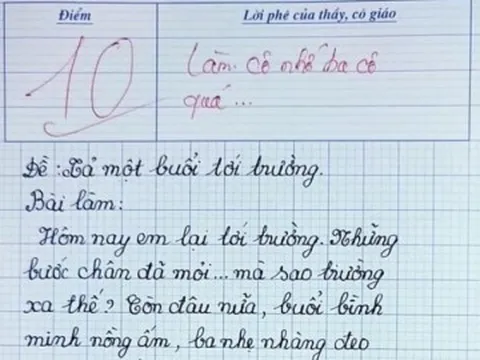 Điểm
Lời phê của thầy, cô giáo
10
Làm. Cô nhớ ba cô
quá ...
Đề : Tả một buổi tới trường.
Bài làm:
Hôm nay em lại tới trường. Những
bước chân đã mỏi... mà sao trường
xa thế? Còn đâu nữa, buổi bình
minh nồng ấm, ba nhẹ nhàng đeo